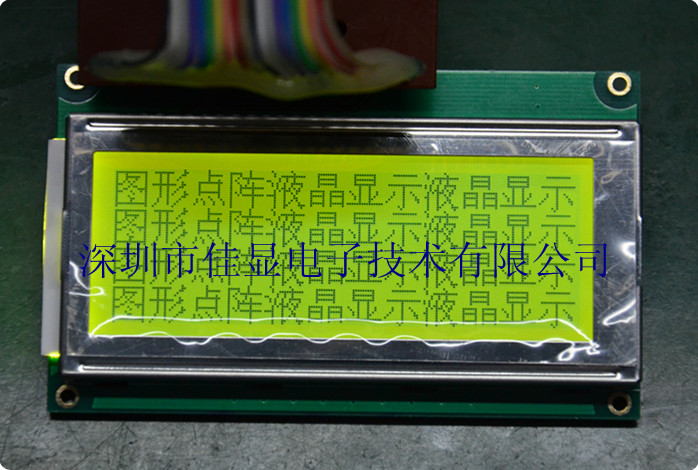 图形点阵液晶显示液晶显示
图形点阵液晶显示液晶显示
深圳市佳显电子技术有限公司
图形点阵液晶显示液晶显示